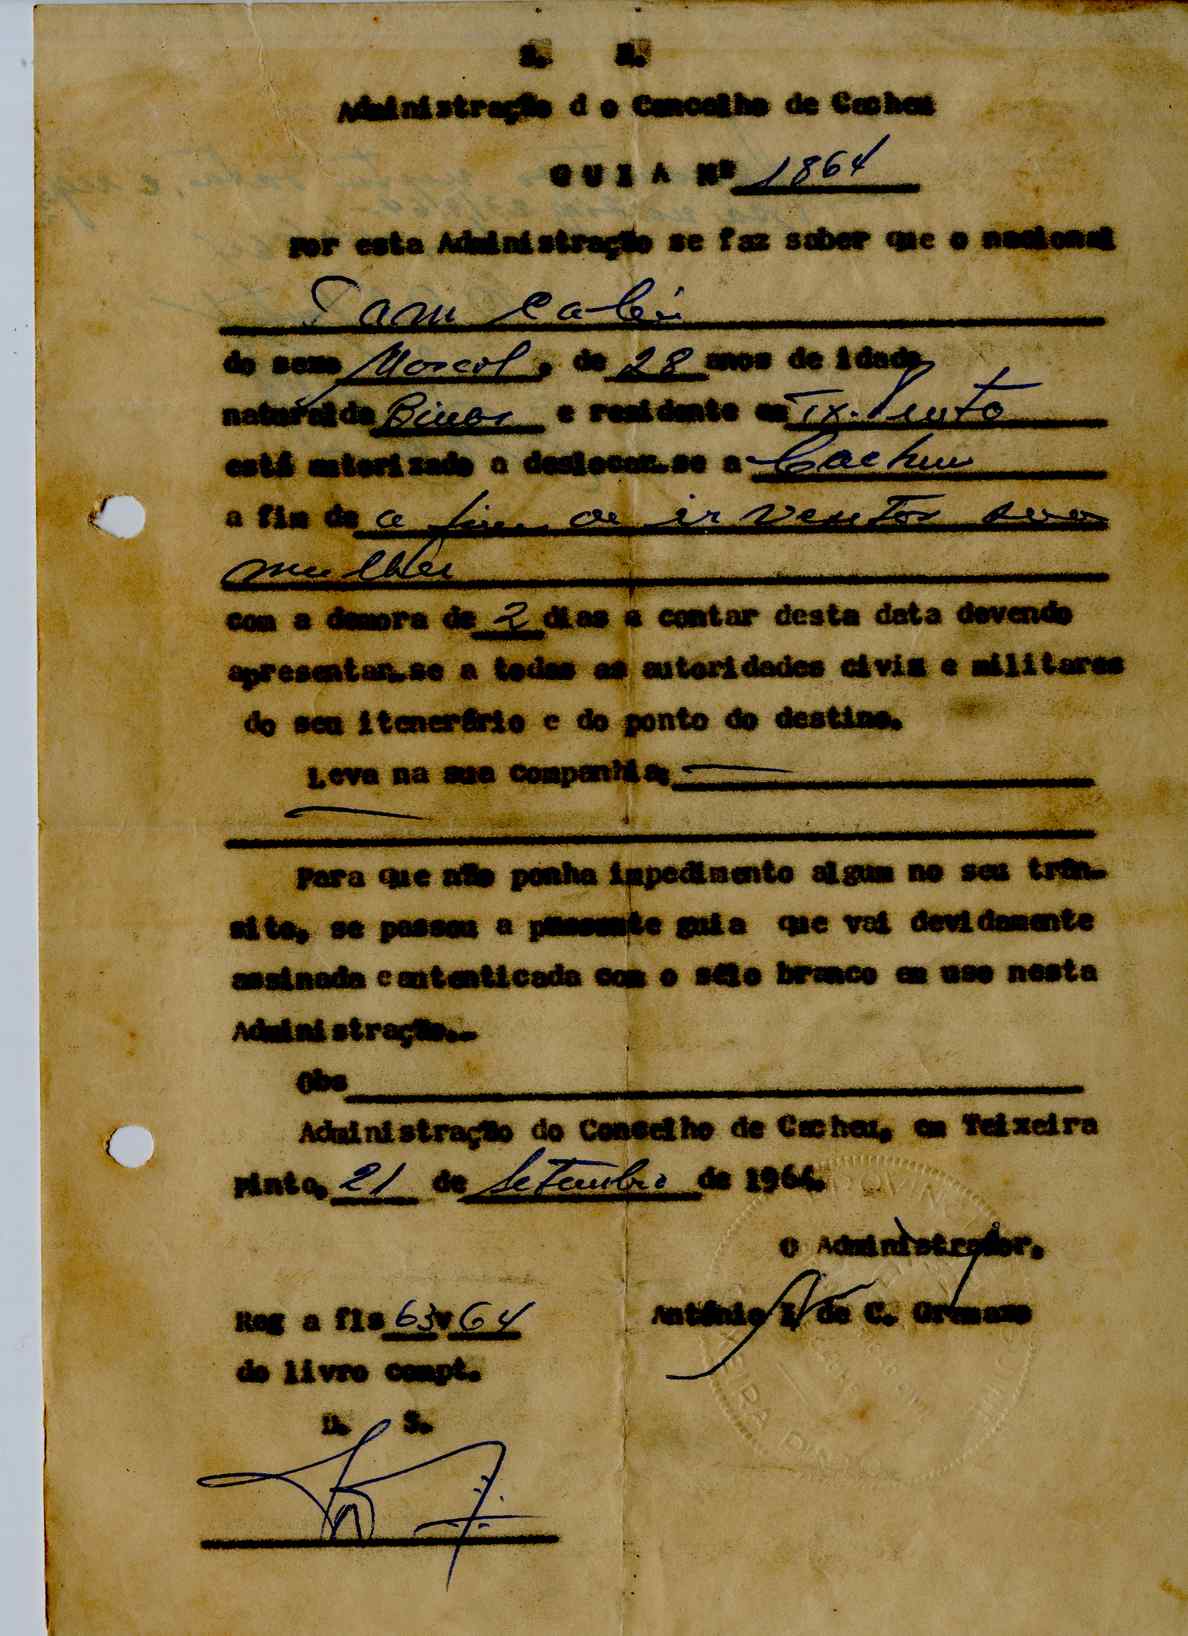 S. R.
Administração d o Concelho de Cacheu
G U I A Nº 1864
Por esta Administração se faz saber que o nacional
do sexo Mascol, de 28 anos de idade
natural de e residente em Tx. Pinto
está autorizado a deslocar-se a Cacheu
a fim de a fim de ir sua
mulher
com a demora de 2 dias a contar desta data devendo
apresentar-se a todas as autoridades civis e militares
do seu itenerário e do ponto do destino.
Leva na sua companhia:
Para que não ponha impedimento algum no seu trân-
sito, se passou a presente guia que vai devidamente
assinada e autenticada com o sêlo branco em uso nesta
Administração.-
Obs
Administração do Conselho de Cacheu, em Teixeira
Pinto, 21 de Setembro de 1964.
O Administrador,
Reg a fls 63v 64 António de C.
do livro compt.